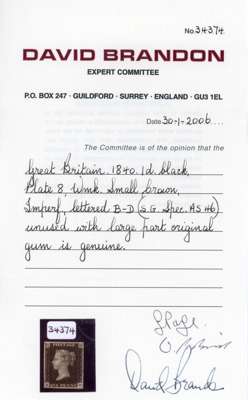 No. 34374.
DAVID BRANDON
EXPERT COMMITTEE
P.O. BOX 247 · GUILDFORD · SURREY · ENGLAND · GU3 1EL
Date 30-1-2006
The Committee is of the opinion that the
Great Britain. 1840. 1d black,
Plate 8, Wmk. Small Crown,
Imperf, lettered B-D (S.G. Spec. AS 46)
unused with large part original
gum is genuine.
34374
POSTAGE
ONE PENNY
David Brandon